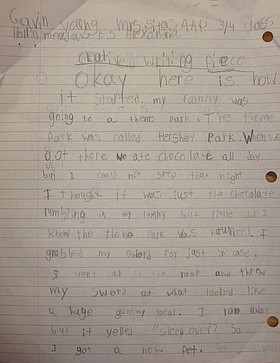 Gavin young Mrs. Sita's AAP 3/4 class
Hollin meadows ES Alexandria
creative writing piece
Okay here is how
it started, my family was
going to a theme park. The theme
Park was called Hershey Park. When we
got there we ate chocolate all day
but I could not sleep that night.
I thought it was just the chocolate
rumbling in my tummy but little did I
know the theme park was haunted. I
grabbed my sword for just in case.
I went to the and threw
my sword at what looked like
a huge gummy bear. I ran away
but it yelled "sleepover? So
I got a new pet.